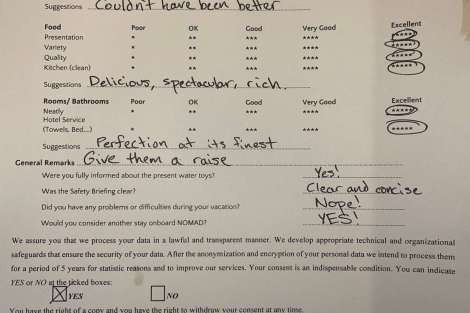 Suggestions Couldn't have been better
Food Poor OK Good Very Good Excellent
Presentation * ** *** **** *****
Variety * ** *** **** *****
Quality * ** *** **** *****
Kitchen (clean) * ** *** **** *****
Suggestions Delicious, spectacular, rich.
Rooms/ Bathrooms Poor OK Good Very Good Excellent
Neatly * ** *** **** *****
Hotel Service
(Towels, Bed...) * ** *** **** *****
Suggestions Perfection at its finest
General Remarks Give them a raise
Were you fully informed about the present water toys? Yes!
Was the Safety Briefing clear? Clear and concise
Did you have any problems or difficulties during your vacation? Nope!
Would you consider another stay onboard NOMAD? YES!
We assure you that we process your data in a lawful and transparent manner. We develop appropriate technical and organizational
safeguards that ensure the security of your data. After the anonymization and encryption of your personal data we intend to process them
for a period of 5 years for statistic reasons and to improve our services. Your consent is an indispensable condition. You can indicate
YES or NO at the ticked boxes:
YES NO
You have the right of a copy and you have the right to withdraw your consent at any time.